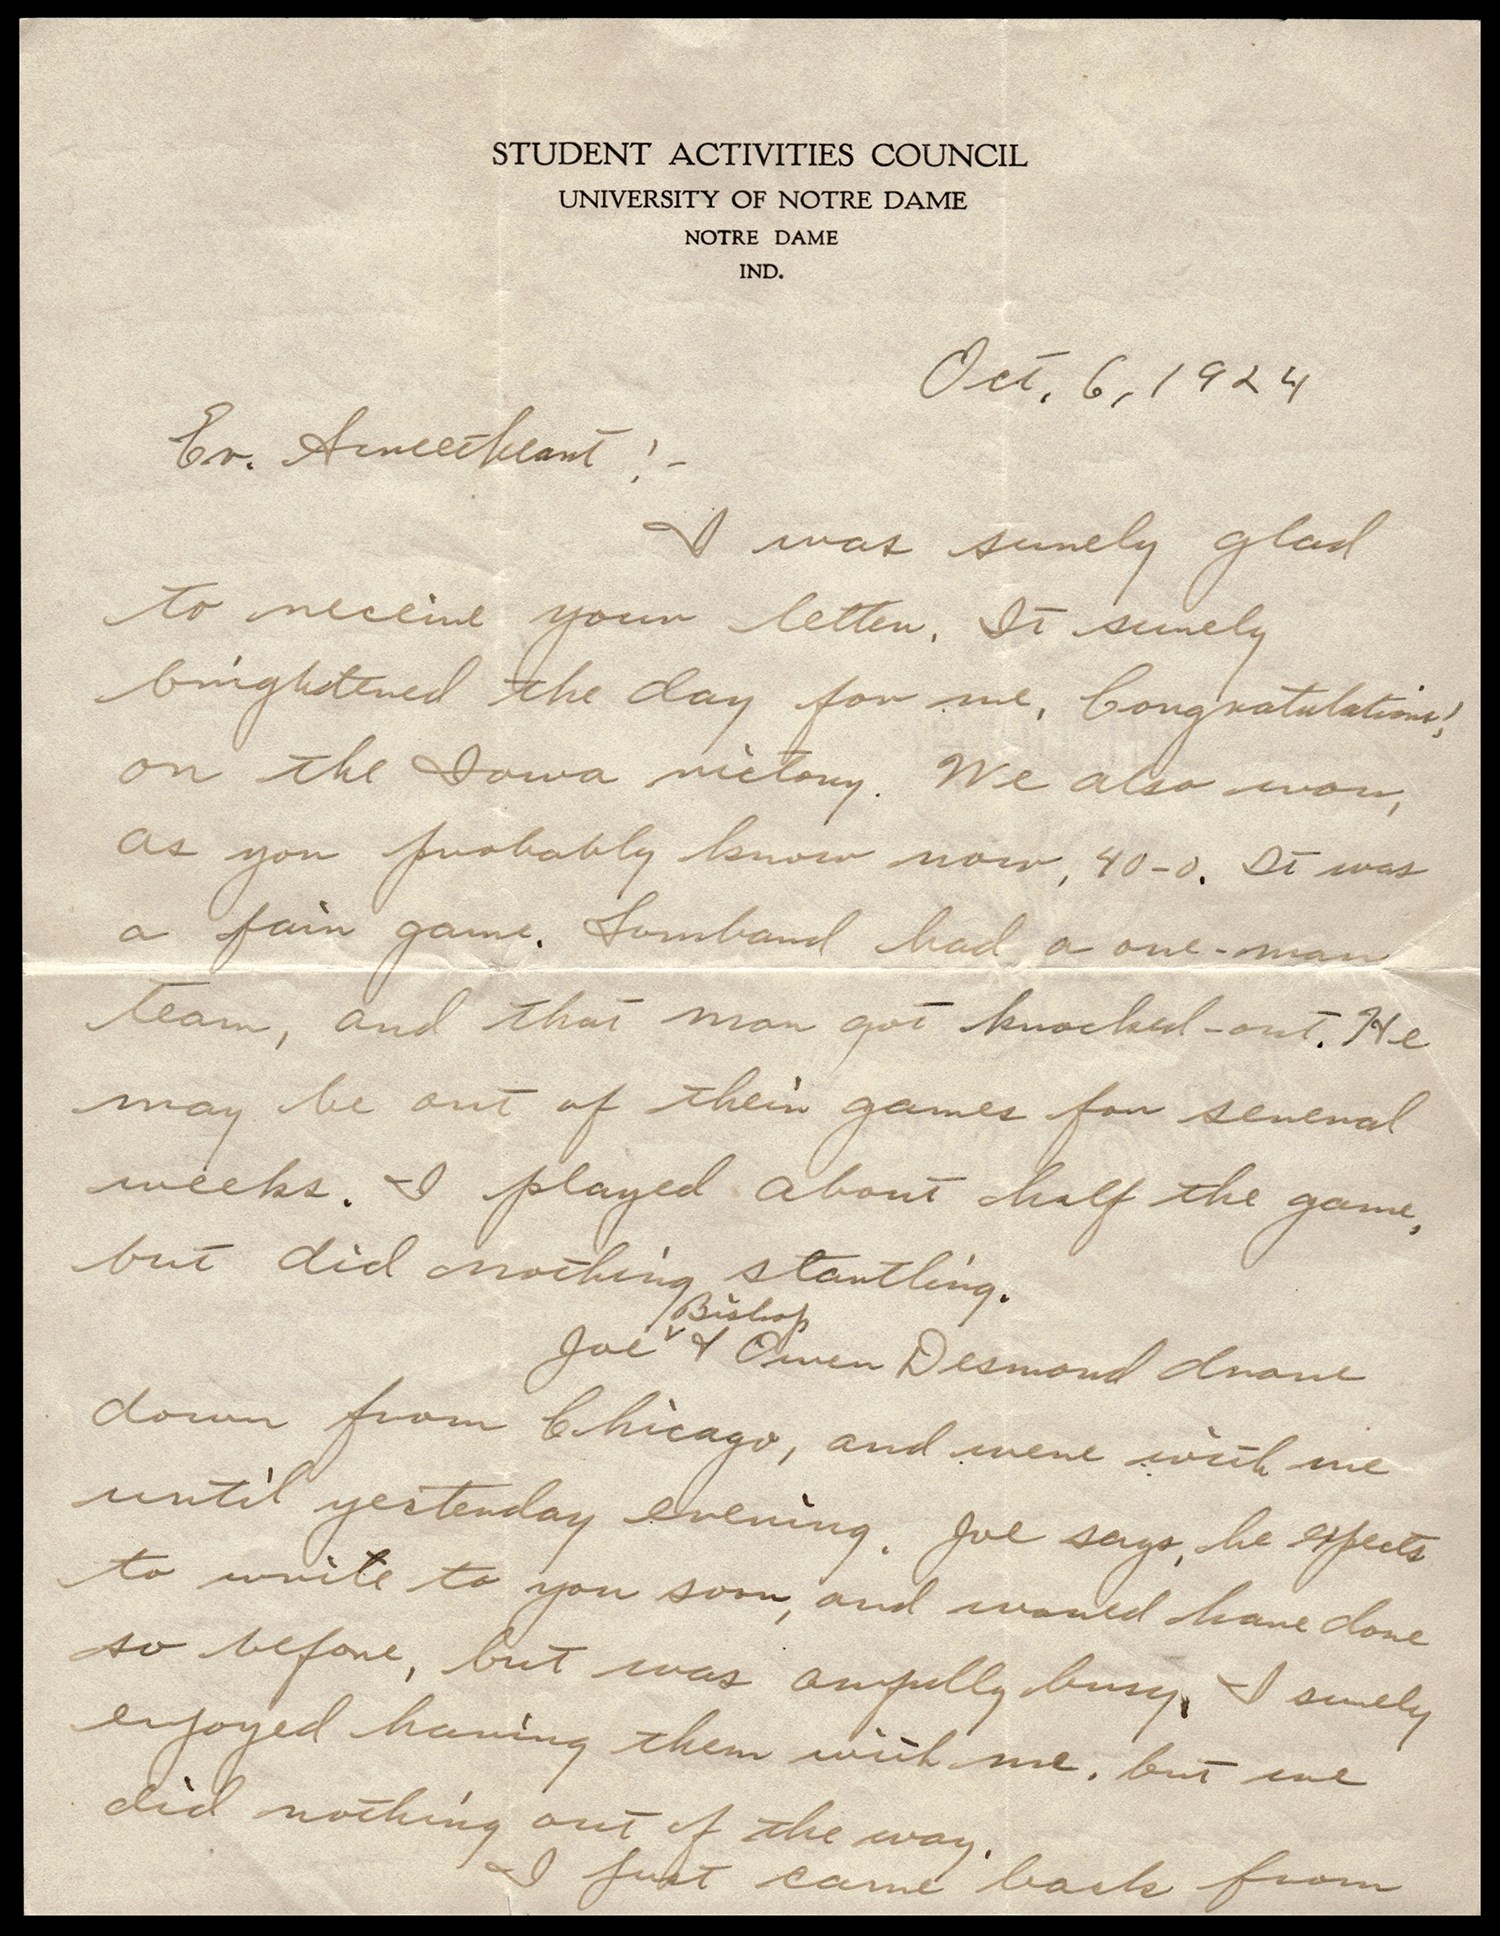 STUDENT ACTIVITIES COUNCIL
UNIVERSITY OF NOTRE DAME
NOTRE DAME
IND.
Oct. 6, 1924
Ev. Sweetheart! -
I was surely glad
to receive your letter. It surely
brightened the day for me. Congratulations!
on the Iowa victory. We also won,
as you probably know now, 40-0. It was
a fair game. Lombard had a one-man
team, and that man got knocked-out. He
may be out of their games for several
weeks. I played about half the game,
but did nothing startling.
Bishop
Joe & Owen Desmond drove
down from Chicago, and were with me
until yesterday evening. Joe says, he expects
to write to you soon, and would have done
so before, but was awfully busy. I surely
enjoyed having them with me. but we
did nothing out of the way.
I just came back from